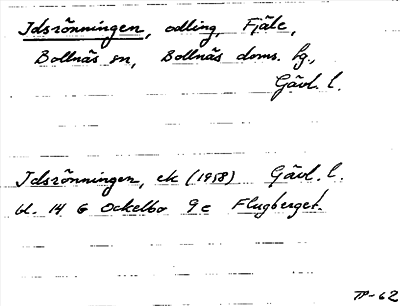 Idsrönningen, odling, Fjäle,
Bollnäs sn, Bollnäs doms. hg.,
Gävl. l.
Idsrönningen, ek (1958) Gävl. l.
bl. 14 G Ockelbo 9 c Flugberget.
TP-62